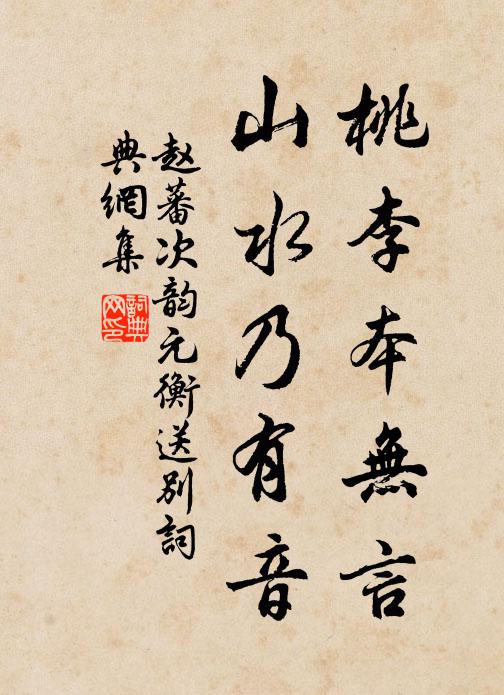 桃李本無言
山水乃有音
赵蕃次韵元衡送别詞
典網集
詞典網印